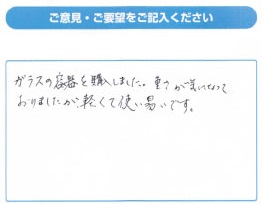 ご意見・ご要望をご記入ください
ガラスの容器を購入しました。重さが気になって
おりましたが、軽くて使い易いです。